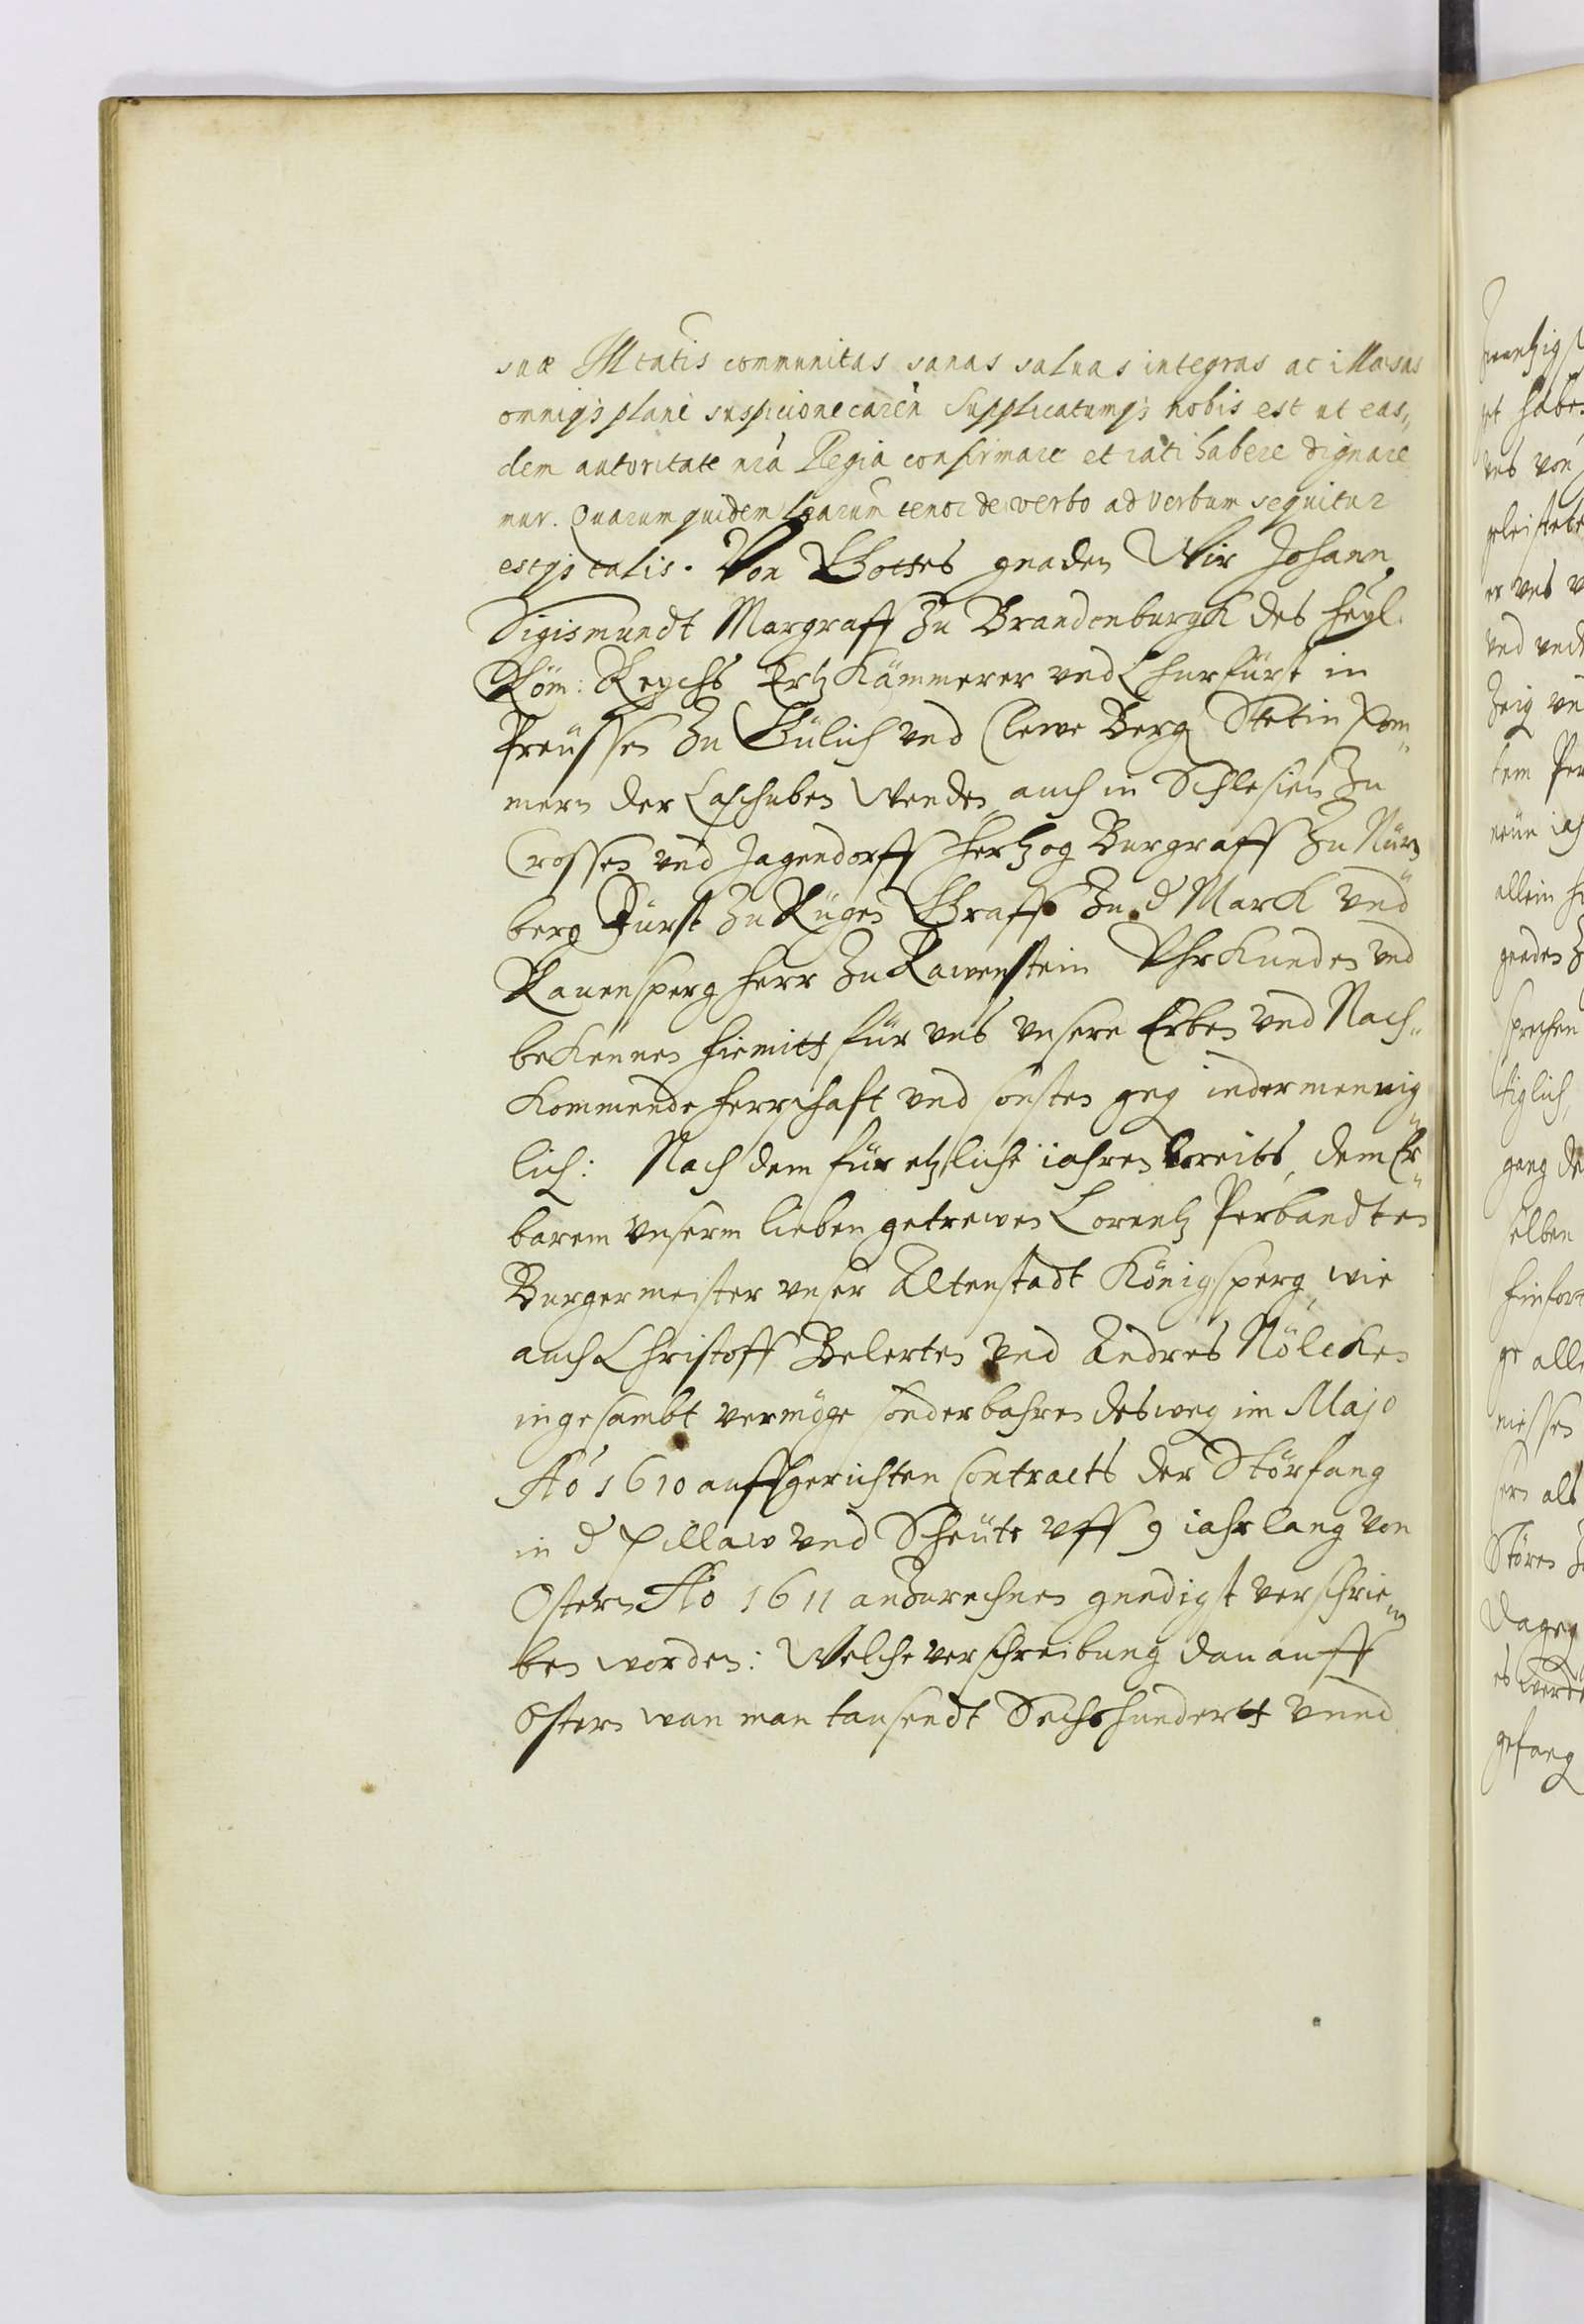 suæ Illtatis communitas sanas saluas integras ac illæsas
omniqȝ planè suspicione caren̄ Supplicatumqȝ nobis est ut eas„
dem autoritate n̄ra Regia confirmare et rati habere dignare
mur. Quarum quidem l̄rarum tenor de verbo ad verbum sequitur
estqȝ talis. Von Gottes gnaden Wir Johann
Sigismundt Margraff Zu Brandenburgk des heyl.
Röm: Reychs Ertz Kämmerer vnd Churfürst in
Preüssen Zu Gülich vnd Clewe Berg Stetin Pom„
mern der Caschuben Wenden auch in Schlesien Zu
Crossen vnd Jagendorff Hertzog Burgraff Zu Nürn„
berg Fürst Zu Rügen Graff Zu d Marck vnd
Rauensperg Herr Zu Rawenstein Vhrkunden vnd
bekennen hiemitt für vns vnsere Erben vnd Nach„
kommende Herrschaft vnd sonsten geg iedermennig„
lich: Nach dem für etzliche iahren bereits, dem Er„
barem vnserm lieben getrewen Lorentz Perbandten
Burgermeister vnser Altenstadt Königsperg, wie
auch Christoff Belerten vnd Andres Nölcken
ingesambt vermöge sonderbahren desweg im Majo
Aō 1610 auffgerichten Contracts der Störfang
in d Pillaw vnd Scheüte vff 9 iahr lang von
Ostern Aō 1611 anzurechnen gnedigst verschrie„
ben worden: Welche verschreibung dan auff
Ostern wan man tausendt Sechshundertt vnnd
allein
sprechen
tiglich,
gang de
selben
ge alle
niessen
als
Stören
gefang